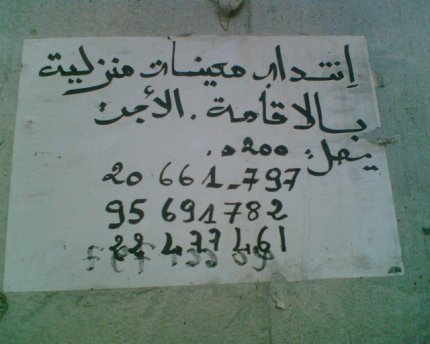 إنتداب معينات منزلية
بالاقامة. الأجر:
يصل: 200د.
20 661-797
95 691782
22 477461